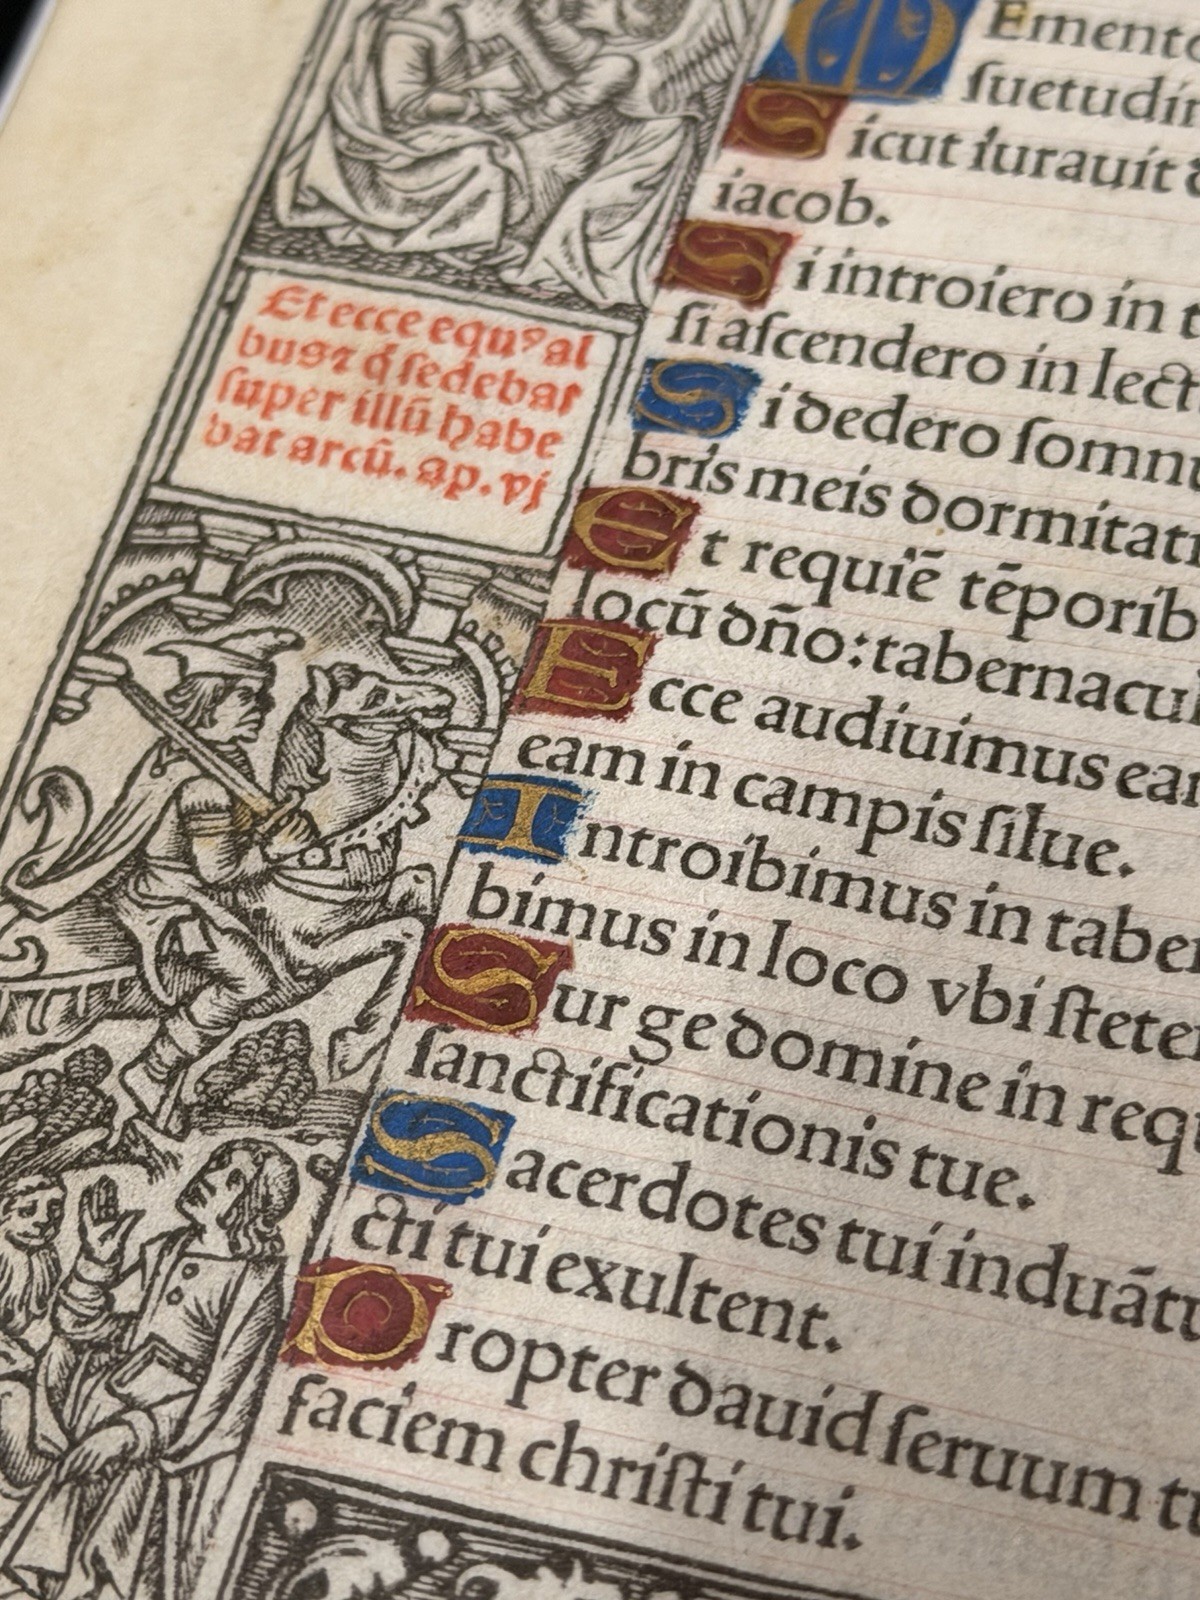 Et ecce equꝰ al
busꝛ q̄ ſedebat
ſuper illū habe
bat arcū. ap. vj
MEmento
ſuetudin
Sicut iurauit d
iacob.
Si introiero in t
ſi aſcendero in lect
Si dedero ſomnu
bris meis dormitati
Et requiē tēporib
locū dn̄o: tabernacul
Ecce audiuimus eam
eam in campis ſilue.
Introibimus in taber
bimus in loco vbi ſtete
Surge domine in requ
ſanctificationis tue.
Sacerdotes tui induātu
cti tui exultent.
Propter dauid ſeruum tu
faciem chriſti tui.